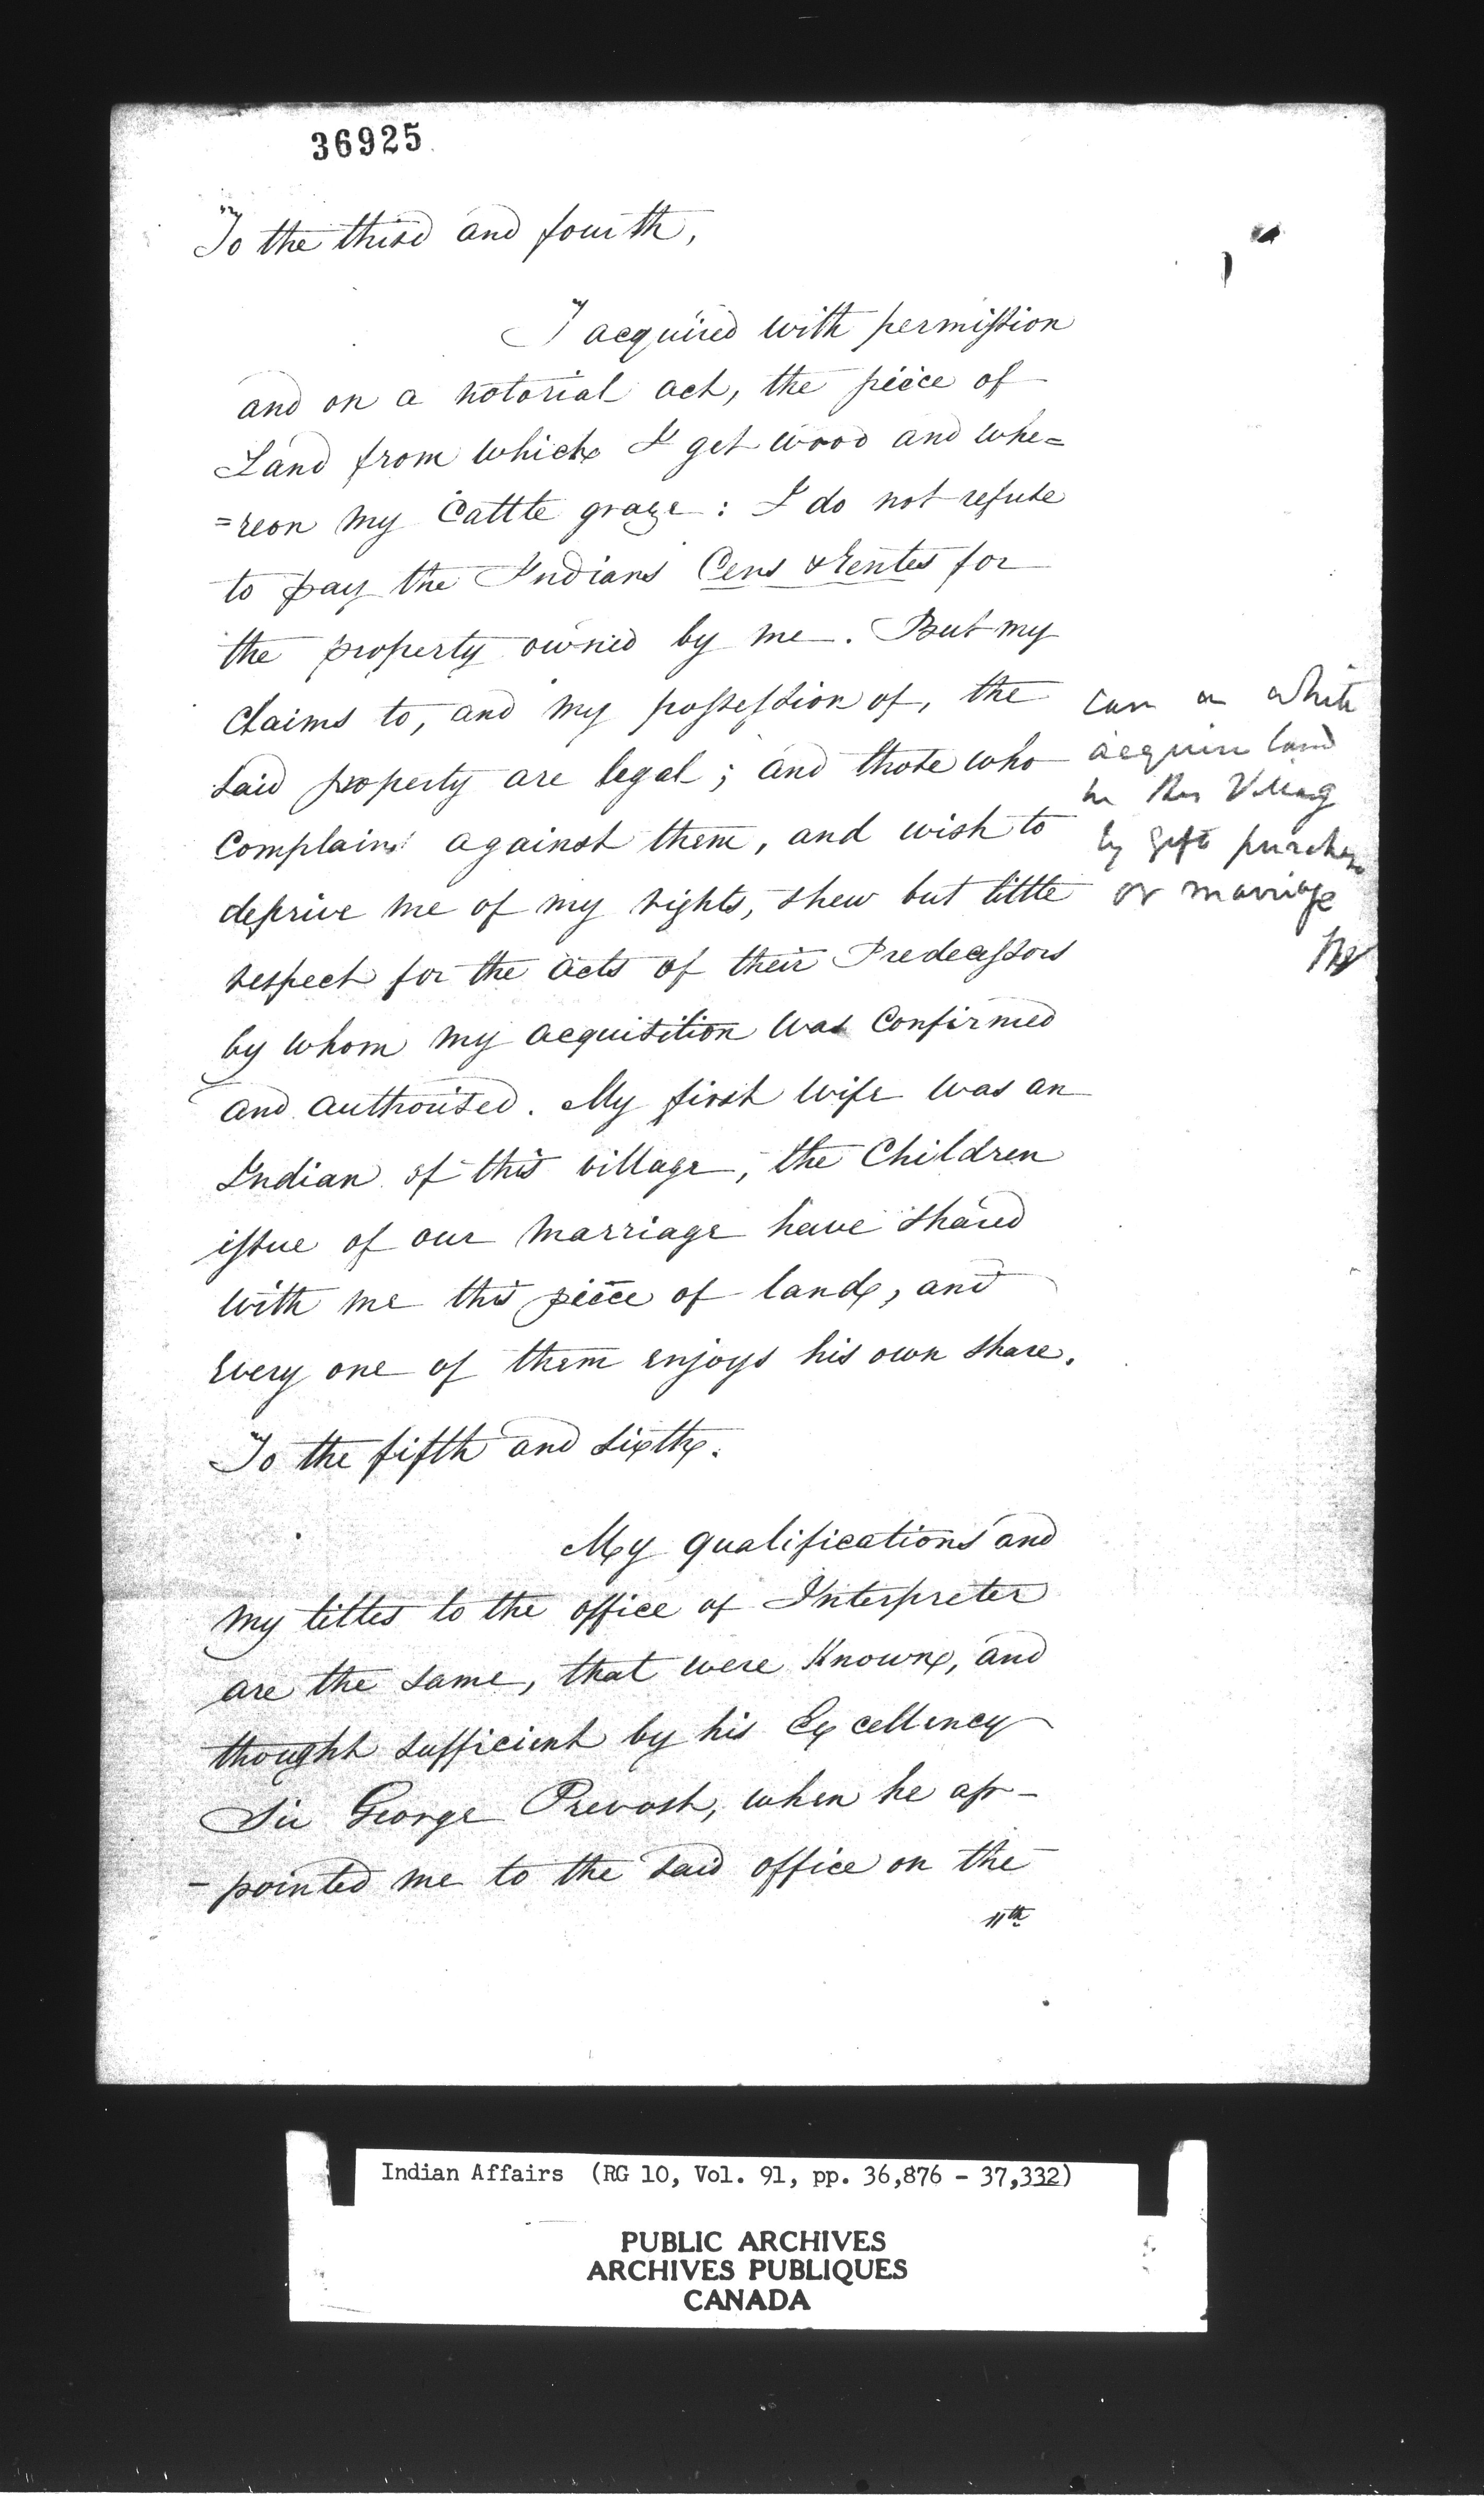 36925
To the third and fourth,
I acquired with permission
and on a notorial act, the piece of
Land from which I get wood and whe=
=reon my Cattle graze : I do not refuse
to pay the Indians Cens & Rentes for
the property owned by me. But my
Claims to, and my possession of, the
said property are legal ; and those who
Complain against them, and wish to
deprive me of my rights, shew but little
respect for the acts of their Predecessors
by whom my acquisition was Confirmed
and authorised. My first wife was an
Indian of this village, the Children
issue of our Marriage have shared
with me this piece of land, and
every one of them enjoys his own share.
can a white
acquire land
in this Village
by gift purchase
or marriage
To the fifth and sixth.
My qualifications and
my titles to the office of Interpreter
are the same, that were Known, and
thought sufficient by his Excellency
Sir George Prevost, when he ap-
-pointed me to the said office on the
11th
Indian Affairs (RG 10, Vol. 91, pp. 36,876 - 37,332)
PUBLIC ARCHIVES
ARCHIVES PUBLIQUES
CANADA